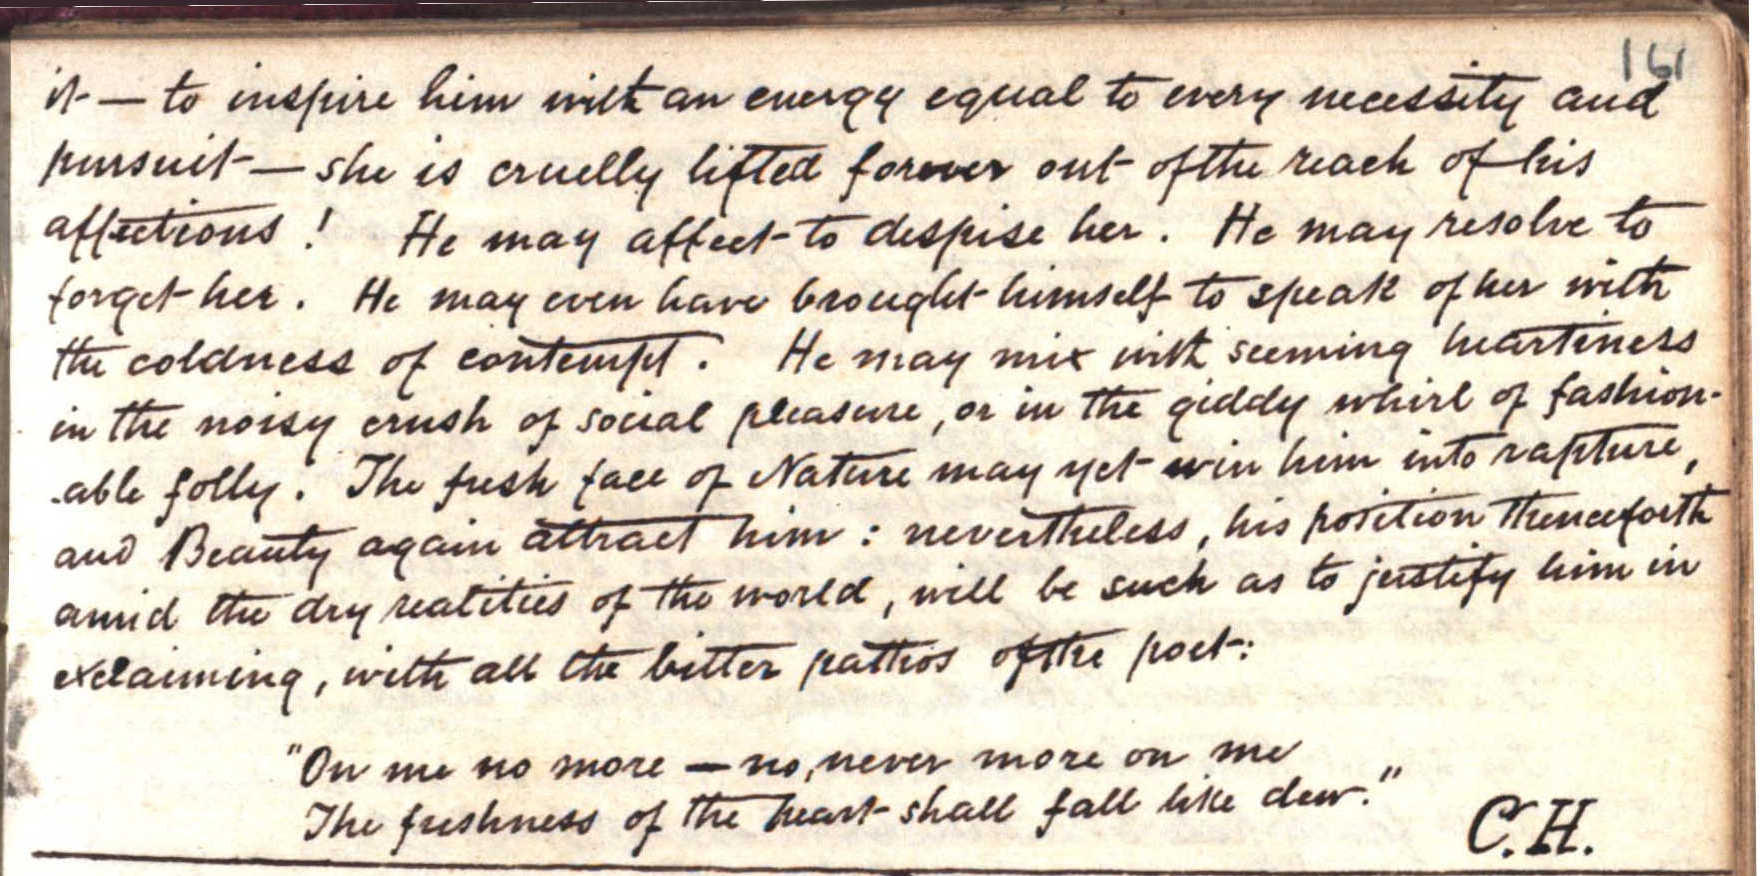 161
it — to inspire him with an energy equal to every necessity and
pursuit — she is cruelly lifted forever out of the reach of his
affections! He may affect to despise her. He may resolve to
forget her. He may even have brought himself to speak of her with
the coldness of contempt. He may mix with seeming heartiness
in the noisy crush of social pleasure, or in the giddy whirl of fashion-
-able folly. The fresh face of Nature may yet win him into rapture,
and Beauty again attract him: nevertheless, his position thenceforth
amid the dry realities of the world, will be such as to justify him in
exclaiming, with all the bitter pathos of the poet:
"On me no more — no, never more on me
The freshness of the heart shall fall like dew."
C.H.